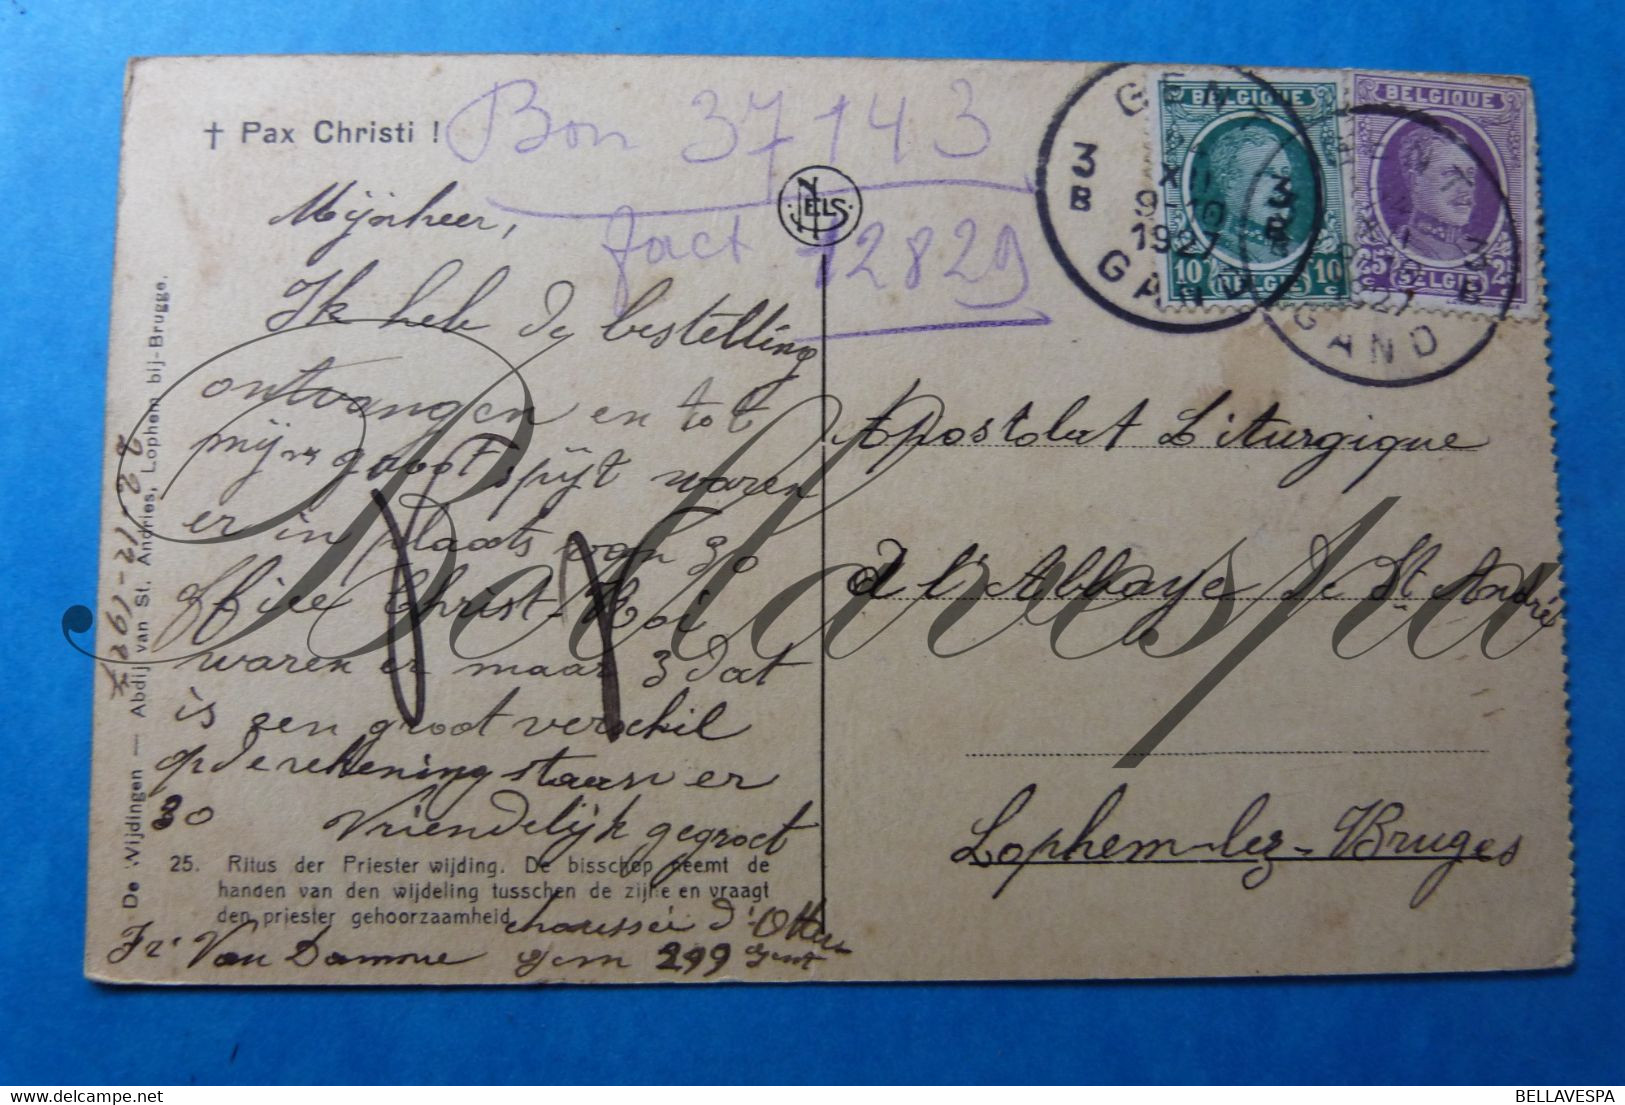 † Pax Christi !
Bon 37143
fact 12829
NELS
Mijnheer,
Ik heb de bestelling
ontvangen en tot
mijn groot spijt waren
er in plaats van 30
office Christ-Roi
waren er maar 3 dat
is een groot verschil
op de rekening staan er
30 Vriendelijk gegroet
25. Ritus der Priester wijding. De bisschop neemt de
handen van den wijdeling tusschen de zijne en vraagt
den priester gehoorzaamheid.
chaussée d'Otter-
Fr Van Damme gem 299 Gent
De Wijdingen — Abdij van St. Andries, Lophem bij-Brugge.
22-12-1927
BELGIQUE
10 BELGIE 10
BELGIQUE
25 BELGIE 25
GENT
3
B
XII
9-10
1927
GAND
GENT
3
B
XII
1927
GAND
Apostolat Liturgique
à l'Abbaye de St André
Lophem-lez-Bruges
Bellavespa
BELLAVESPA